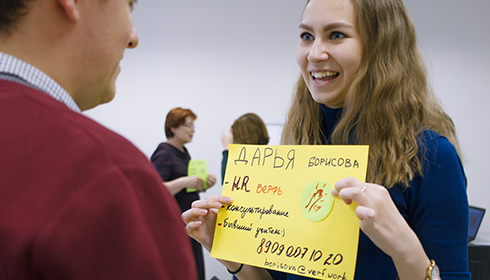 ДАРЬЯ БОРИСОВА
- HR ВЕРФЬ
- Консультирование
- Бывший учитель:)
89090071020
borisova@verf.work